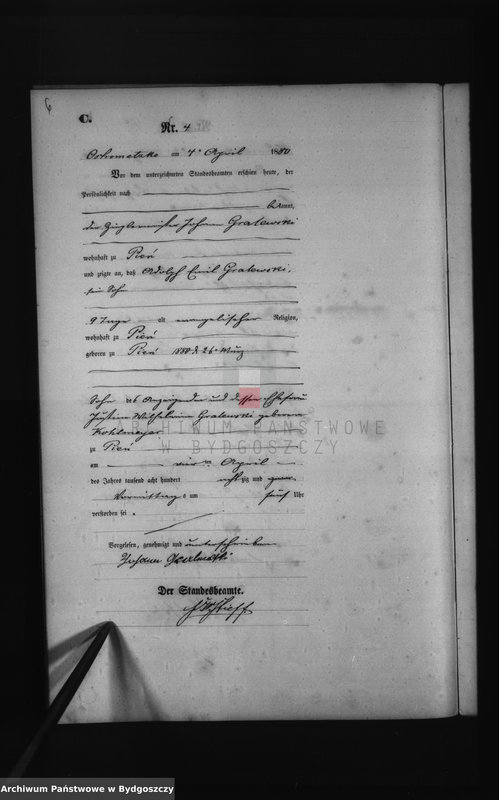 6
C.
Nr. 4
Ostrometzko am 4ten April 1880
Vor dem unterzeichneten Standesbeamten erschien heute, der
Persönlichkeit nach
bekannt,
der Zieglermeister Johann Gralewski
wohnhaft zu Pień
und zeigte an, daß Adolph Emil Gralewski,
sein Sohn
9 Tage alt evangelischer Religion,
wohnhaft zu Pień
geboren zu Pień 1880 d. 26 März
Sohn des Anzeigenden und dessen Ehefrau
Justine Wilhelmine Gralewski geborene
Kohlmeyer
zu Pień
am vierten April
des Jahres tausend acht hundert achtzig und
Vormittags um fünf Uhr
verstorben sei.
Vorgelesen, genehmigt und unterschrieben
Johann Gralewski
Der Standesbeamte.
ARCHIWUM PAŃSTWOWE
W BYDGOSZCZY
Archiwum Państwowe w Bydgoszczy